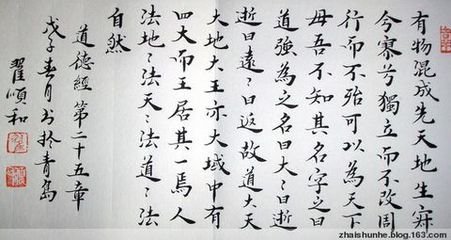 有物混成先天地生寂
兮寥兮獨立而不改周
行而不殆可以為天下
母吾不知其名字之曰
道強為之名曰大〻曰逝
逝曰遠〻曰返故道大天
大地大王亦大域中有
四大而王居其一焉人
法地〻法天〻法道〻法
自然
道德經第二十五章
戊子春月书於青島
翟順和
zhaishunhe.blog.163.com